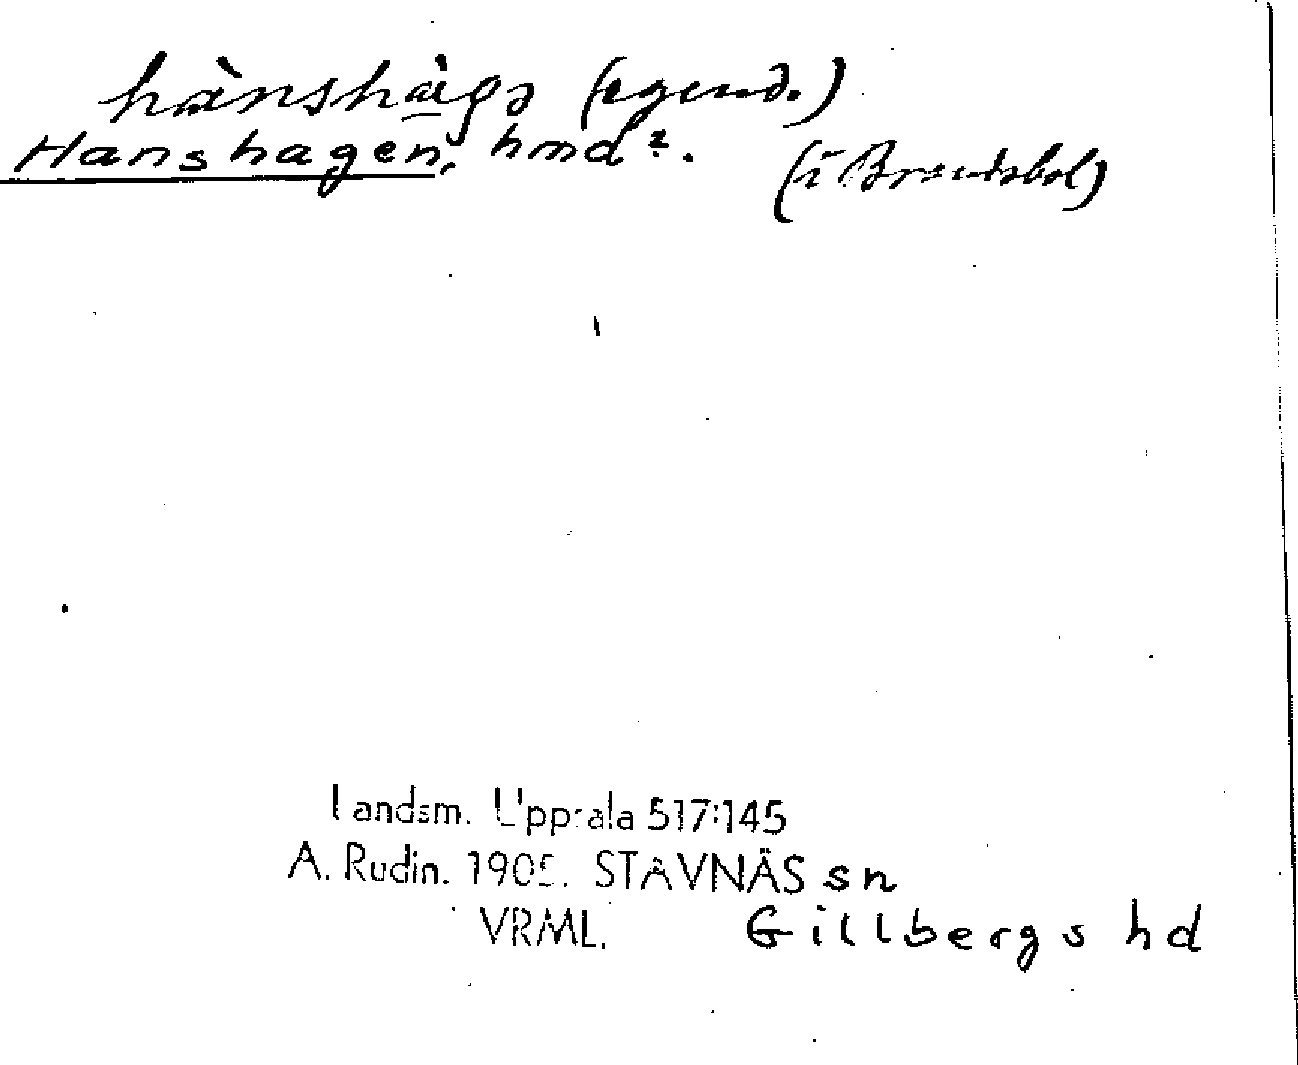 hànshàgɔ (egend.)
Hanshagen, hmd?.
(i Brandsbol)
Landsm. Uppsala 517:145
A. Rudin. 1905. STAVNÄS sn
VRML. Gillbergs hd